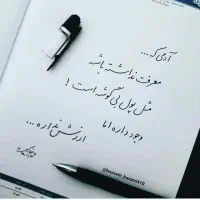 آدمی که...
معرفت نداشته باشه
مثل پول بی گوشه است!
وجود داره اما
ارزش نداره...
@hossein_karami410